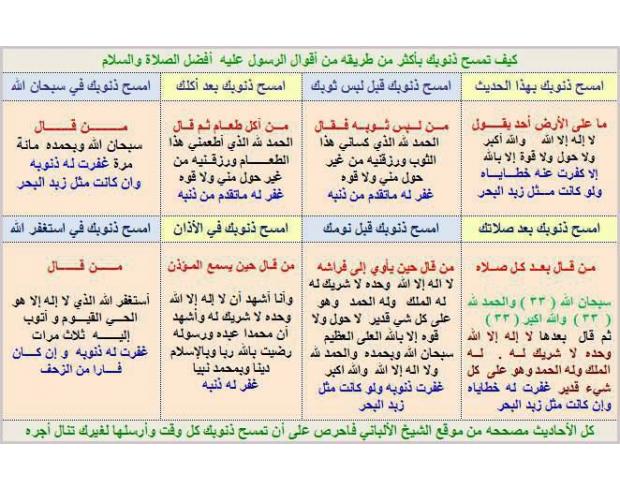 كيف تمسح ذنوبك بأكثر من طريقه من أقوال الرسول عليه أفضل الصلاة والسلام
امسح ذنوبك بهذا الحديث
ما على الأرض أحد يقول
لا إله إلا الله والله أكبر
ولا حول ولا قوة إلا بالله
إلا كفرت عنه خطاياه
ولو كانت مثل زبد البحر
امسح ذنوبك قبل لبس ثوبك
من لبس ثوبه فقال
الحمد لله الذي كساني هذا
الثوب ورزقنيه من غير
حول مني ولا قوه
غفر له ماتقدم من ذنبه
امسح ذنوبك بعد أكلك
من أكل طعام ثم قال
الحمد لله الذي أطعمني هذا
الطعام ورزقنيه من
غير حول مني ولا قوه
غفر له ماتقدم من ذنبه
امسح ذنوبك في سبحان الله
من قال
سبحان الله وبحمده مائة
مرة غفرت له ذنوبه
وان كانت مثل زبد البحر
امسح ذنوبك بعد صلاتك
من قال بعد كل صلاه
سبحان الله ( ٣٣ ) والحمد لله
( ٣٣ ) والله اكبر ( ٣٣ )
ثم قال بعدها لا إله إلا الله
وحده لا شريك له . له
الملك وله الحمد وهو على كل
شيء قدير غفرت له خطاياه
وإن كانت مثل زبد البحر
امسح ذنوبك قبل نومك
من قال حين يأوي إلى فراشه
لا اله إلا الله وحده لا شريك له
له الملك وله الحمد وهو
على كل شي قدير لا حول ولا
قوه إلا بالله العلى العظيم
سبحان الله وبحمده والحمد لله
ولا اله إلا الله والله اكبر
غفرت ذنوبه ولو كانت مثل
زبد البحر
امسح ذنوبك في الأذان
من قال حين يسمع المؤذن
وأنا أشهد أن لا إله إلا الله
وحده لا شريك له وأشهد
أن محمدا عبده ورسوله
رضيت بالله ربا وبالإسلام
دينا وبمحمد نبيا
غفر له ذنبه
امسح ذنوبك في استغفر الله
من قال
أستغفر الله الذي لا إله إلا هو
الحي القيوم و أتوب
إليه ثلاث مرات
غفرت له ذنوبه و إن كان
فارا من الزحف
كل الأحاديث مصححه من موقع الشيخ الألباني فاحرص على أن تمسح ذنوبك كل وقت وأرسلها لغيرك تنال أجره